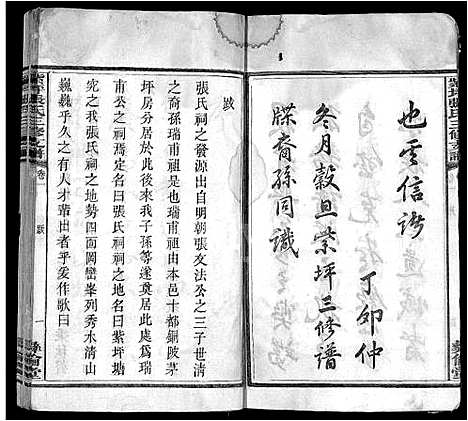 也云信誇
丁卯仲
冬月穀旦紫坪三修譜
牒裔孫同識
彝倫堂
紫坪張氏三修支譜
卷一
跋
一
彝倫堂
跋
張氏祠之發源出自明朝張友法公之三子世清
之裔孫瑞甫祖是也瑞甫祖由本邑十都銅陂茅
坪房居於此後來我子孫等遂奠居於此處爲瑞
甫公之祠焉地名曰張氏祠祠之地名曰紫坪塘
究之我張氏祠之地勢四面岡巒峯列秀水清山
巍巍乎久之有人才輩出者乎爰作歌曰